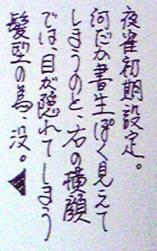 夜雀初期設定。
何だか書生ぽく見えて
しまうのと、右の横顔
では目が隠れてしまう
髪型の為、没。